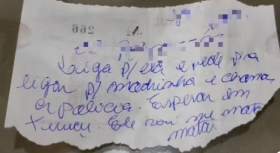 Liga p/ ela e pede pra
ligar p/ madrinha e chama
a polícia. Esperar em
Ele vai me mata
matar